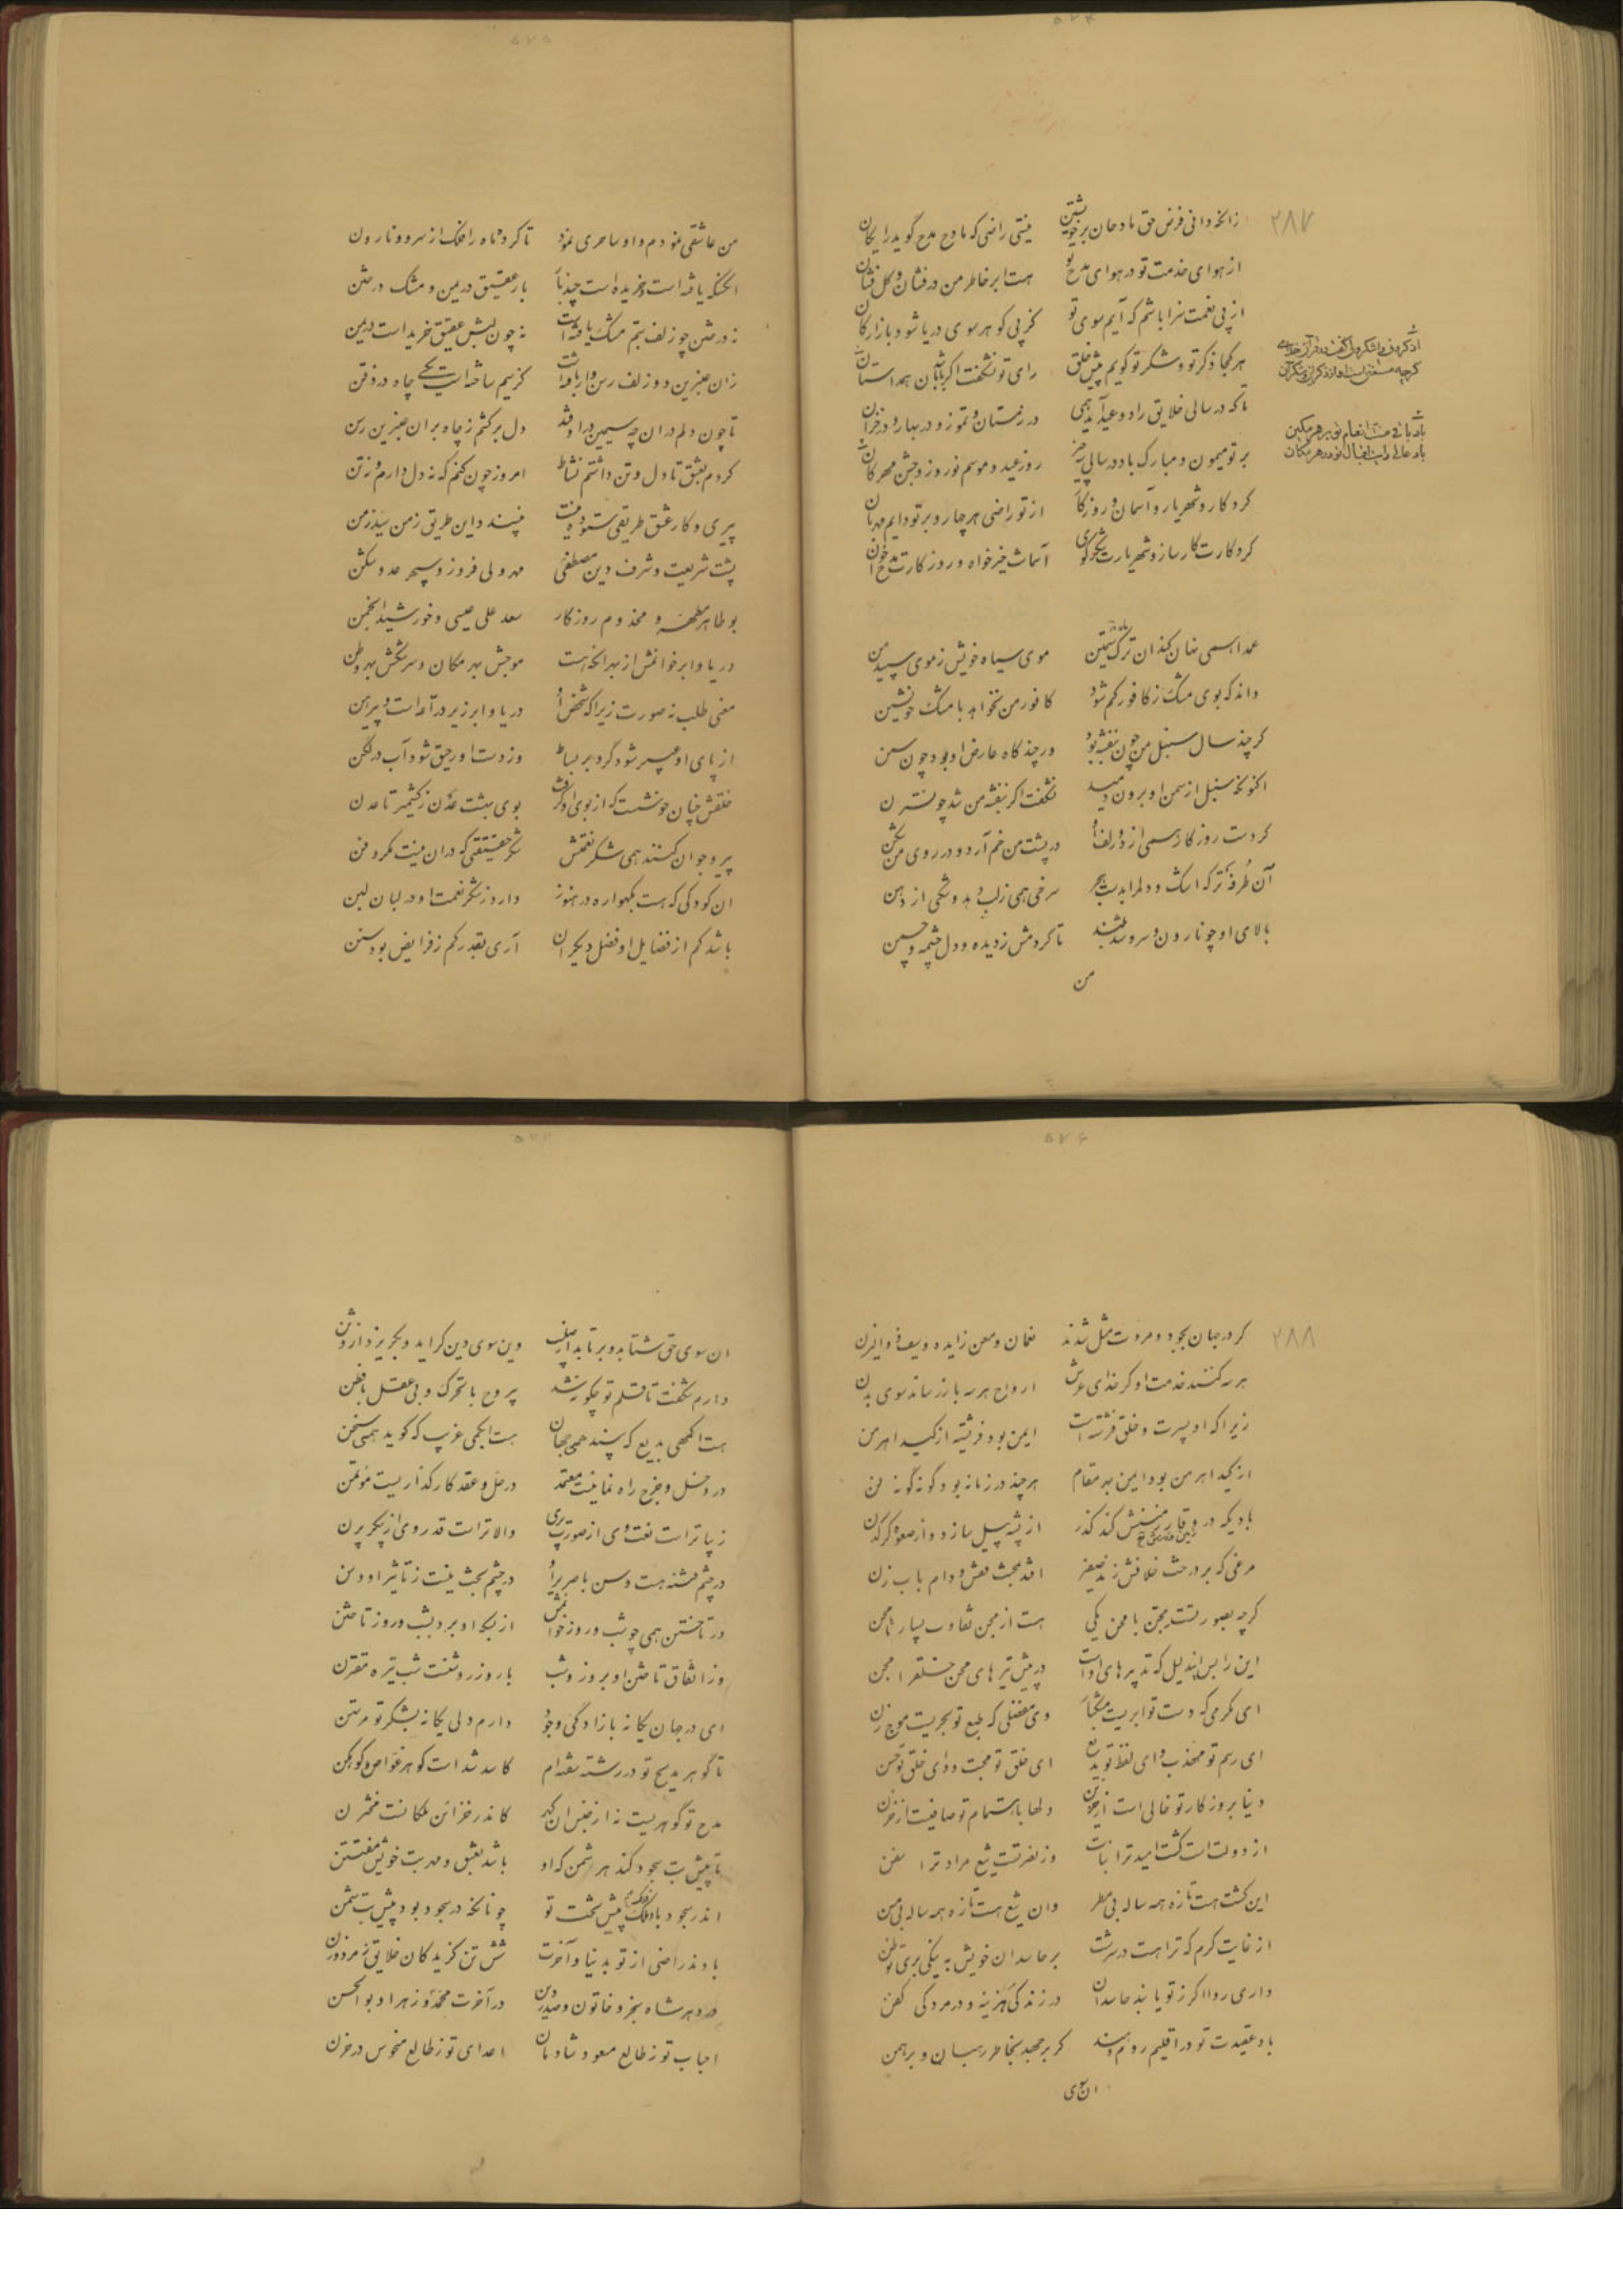 ۵۷۴
۲۸۷
زانکه دانی فرض حق مادحان بر خویشتن نیستی راضی که مادح مدح گوید رایگان
از هوای خدمت تو در هوای مدح تو هست ابر خاطر من درفشان و گل فشان
از پی نعمت سزا باشم که آیم سوی تو کز پی گوهر سوی دریا شود بازارگان
هر کجا ذکر تو و شکر تو گویم پیش خلق رای تو نشگفت اگر باشد بدان همداستان
تا که در سالی خلایق را دو عید آید همی در زمستان و تموز و در بهار و در خزان
بر تو میمون و مبارک باد در سالی سه چیز روز عید و موسم نوروز و جشن مهرگان
کردگار و شهریار و آسمان و روزگار از تو راضی هر چهار و بر تو دایم مهربان
کردگارت کارساز و شهریارت شکرگوی آسمانت خیرخواه و روزگارت مدح خوان
اذکرونی واشکرولی گفت در قرآن خدای
گرچه مستغنی است او از ذکر و از شکر آن
باد باقی انعام تو بر هر مکین
باد عالی رایت اقبال تو در هر مکان
عمدا همی نهان کند آن ترک سیمتن موی سیاه خویش ز موی سپید من
داند که بوی مشک ز کافور کم شود کافور من نخواهد با مشک خویشتن
گر چند سال سنبل من چون بنفشه بود ور چند گاه عارض او بود چون سمن
اکنونکه سنبل از سمن او برون دمید نشگفت اگر بنفشه من شد چو نسترن
کردست روزگار همی از دو زلف او در پشت من خم آرد و در روی من شکن
آن طرفه تر که اشک و دلم را بدست هجر سرخی همی ز لب دهد و تنگی از دهن
بالای او چو نارون و سرو شد بلند تا کردمش ز دیده و دل چشمه و چمن
من
۵۷۵
من عاشقی نمودم و او ساحری نمود تا کرد ماه را فلک از سرو و نارون
آنکه یافته است و خریده است چند بار عقیق در یمن و مشک در ختن
نه در ختن چو زلف بتم مشک یافته است نه چون لبش عقیق خریده است در یمن
زان عنبرین دو زلف رسن وار بافته است کز سیم ساخته است یکی چاه در ذقن
تا چون دلم در آن چه سیمین در اوفتد دل برکشم ز چاه بر آن عنبرین رسن
کردم بعشق تا دل و تن داشتم نشاط امروز چون کنم که نه دل دارم و نه تن
پیری و کار عشق طریقی ستوده نیست نپسندد این طریق ز من سید زمن
پشت شریعت و شرف دین مصطفی مهر ولی فروز و سپهر عدو شکن
بوطاهر مطهر و مخدوم روزگار سعد علی عیسی و خورشید انجمن
دریا و ابر خوانمش از بهر آنکه هست موجش بهر مکان و سرشکش بهر وطن
معنی طلب نه صورت زیرا که شخص او دریا و ابر زیر درآمد است و پیرهن
از پای او عبیر شود گرد بر بساط وز دست او رحیق شود آب در لگن
خلقش چنان خوشست که از بوی او گرفت بوی بهشت عدن ز کشمیر تا عدن
پیر و جوان کنند همی شکر نعمتش شکر حقیقتی که در آن نیست مکر و فن
آن کودکی که هست بگهواره در هنوز دارد ز شکر نعمت او در لبان لبن
باشد کم از فضایل او فضل دیگران آری بقدر کم ز فرایض بود سنن
۵۷۶
۲۸۸
گر در جهان بجود و مروت مثل شدند نعمان و معن زایده و سیف ذوالیزن
هر سه کنند خدمت او گر خدای عرش ارواح هر سه باز رساند سوی بدن
زیرا که او پریست و خلق فرشته است ایمن بود فرشته از کید اهرمن
از کید اهرمن بود ایمن بهر مقام هرچند در زمانه بود گونه گونه فن
بادیکه در وقار منشش کند گذر از پشه پیل سازد و از صعوه کرگدن
مرغی که بر درخت خلافش زند صفیر افتد بحبث عش و دام بابزن
گرچه بصورتست مجن با محن یکی هست از مجن تفاوت بسیار تا محن
این را بس این دلیل که تدبیرهای اوست در پیش تیرهای محن خلق را مجن
ای مکرمی که دست تو ابریست مشکبار وی مفضلی که طبع تو بحریست موج زن
ای رسم تو مهذب و ای لفظ تو بدیع ای خلق تو محبت و وای خلق تو حسن
دنیا بروزگار تو خالی است از حزن دلها باهتمام تو صافیست از حزن
از دولت است کشت امید ترا نبات وز نصرتست تیغ مراد ترا سفن
این کشت هست تازه همه ساله بی مطر وان تیغ هست تازه همه ساله بی مسن
از غایت کرم که تراهست در سرشت بر حاسدان خویش به نیکی بری تو ظن
داری روا اگر ز تو یابند حاسدان در زندگی هزینه و در مردگی کفن
باد عقیدت تو در اقلیم روم و هند گر برجهد بخاطر رهبان و برهمن
آن سوی
۵۷۷
آن سوی حق شتابد و برتابد از صلیب وین سوی دین گراید و بگریزد از وثن
دارم شگفت تا قلم تو چگونه شد بیروح با تحرک و بی عقل با فطن
هست اکمهی بدیع که بیند همی جهان هست ابکمی غریب که گوید همی سخن
در دخل و خرج راه نمائیست معتمد در حل و عقد کارگذاریست مؤتمن
زیباتر است نعت وی از صورت پری والاتر است قدر وی از پیکر پرن
در چشم فتنه هست وسن با صریر او در چشم بخت نیست ز تأثیر او وسن
در تاختن همی چو شب و روز خوانمش از بسکه او برد بشب و روز تاختن
وز اتفاق تاختن او بروز و شب با روز روشنست شب تیره مقترن
ای در جهان یگانه بازادگی وجود دارم دلی یگانه بشکر تو مرتهن
تا گوهر مدیح تو در رشته بسته‌ام کاسد شد است گوهر غواص و کوهکن
مدح تو گوهریست نه از جنس آن گهر کاندر خزائن ملکانست مختزن
تا پیش بت سجود کند هر شمن که او باشد بعشق و مهر بت خویش مفتتن
اندر سجود باد فلک پیش تخت تو چونانکه در سجود بود پیش بت شمن
بادند راضی از تو بدنیا و آخرت شش تن گزیدگان خلایق ز مرد و زن
در دهر شاه سنجر و خاتون و صدر دین در آخرت محمد و زهرا و بوالحسن
احباب تو ز طالع مسعود شادمان اعدای تو ز طالع منحوس در حزن